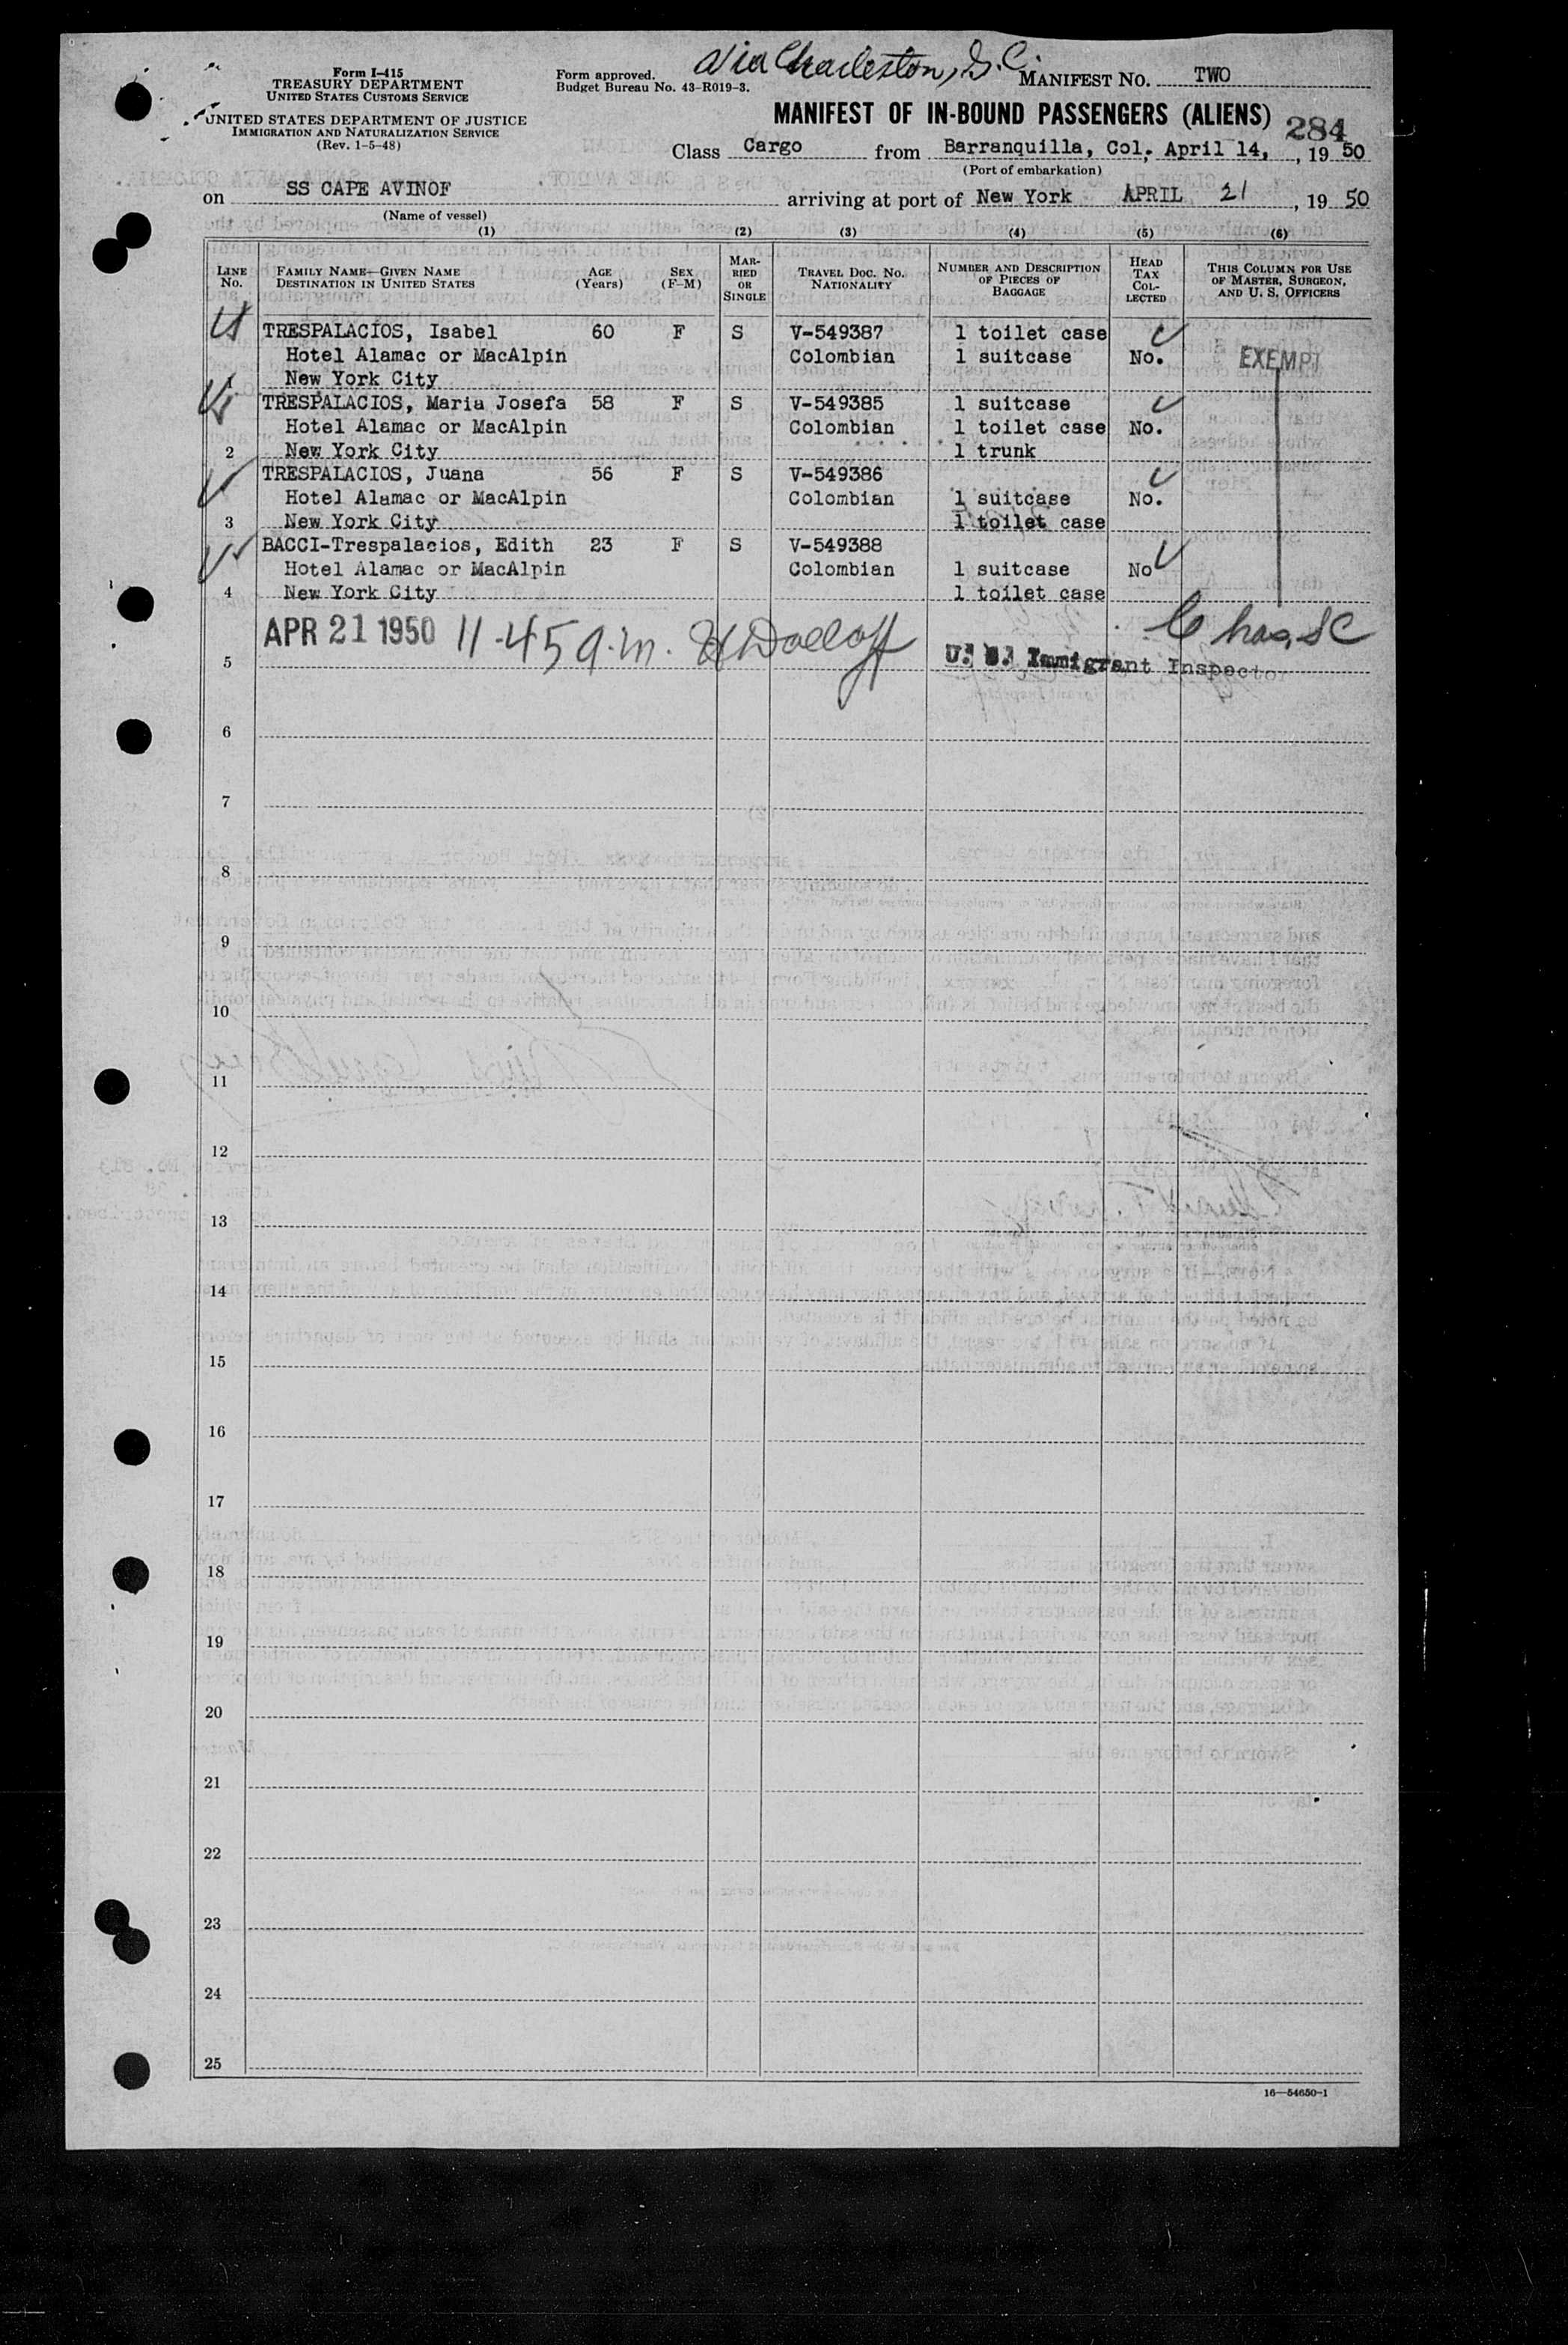 via Charleston, S.C.
Form I-415
TREASURY DEPARTMENT
UNITED STATES CUSTOMS SERVICE
UNITED STATES DEPARTMENT OF JUSTICE
IMMIGRATION AND NATURALIZATION SERVICE
(Rev. 1-5-48)
Form approved.
Budget Bureau No. 43-R019-3.
MANIFEST NO. TWO
MANIFEST OF IN-BOUND PASSENGERS (ALIENS) 284
Class Cargo from Barranquilla, Col. April 14, , 19 50
(Port of embarkation)
on SS CAPE AVINOF arriving at port of New York APRIL 21 , 19 50
(Name of vessel)
(1) (2) (3) (4) (5) (6)
LINE NO. FAMILY NAME—GIVEN NAME DESTINATION IN UNITED STATES AGE (YEARS) SEX (F-M) MARRIED OR SINGLE TRAVEL DOC. NO. NATIONALITY NUMBER AND DESCRIPTION OF PIECES OF BAGGAGE HEAD TAX COLLECTED THIS COLUMN FOR USE OF MASTER, SURGEON, AND U. S. OFFICERS
TRESPALACIOS, Isabel 60 F S V-549387 1 toilet case
Hotel Alamac or MacAlpin Colombian 1 suitcase No. EXEMPT
New York City
TRESPALACIOS, Maria Josefa 58 F S V-549385 1 suitcase
Hotel Alamac or MacAlpin Colombian 1 toilet case No.
2 New York City 1 trunk
TRESPALACIOS, Juana 56 F S V-549386
Hotel Alamac or MacAlpin Colombian 1 suitcase No.
3 New York City 1 toilet case
BACCI-Trespalacios, Edith 23 F S V-549388
Hotel Alamac or MacAlpin Colombian 1 suitcase No
4 New York City 1 toilet case
APR 21 1950 11-45 a.m. Chas, SC
5 U. S. Immigrant Inspector
6
7
8
9
10
11
12
13
14
15
16
17
18
19
20
21
22
23
24
25
16—54650-1